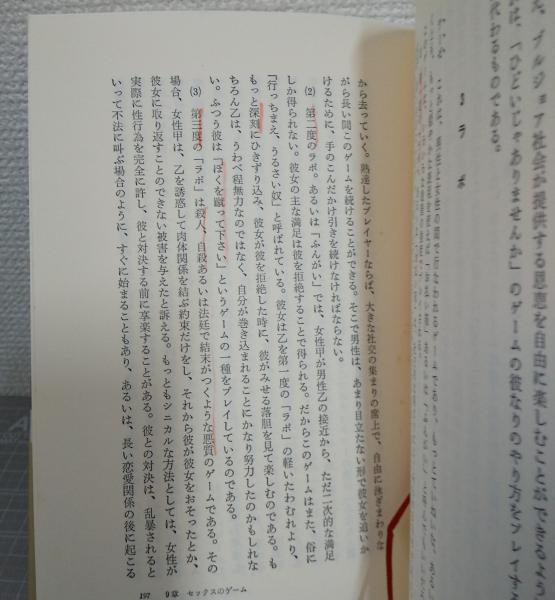 た、ブルジョア社会が提供する恩恵を自由に楽しむことができるように
は、「ひどいじゃありませんか」のゲームの彼なりのやり方をプレイする
代わるものである。
3 ラポ
から去っていく。熟達したプレイヤーならば、大きな社交の集まりの席上で、自由に泳ぎまわりな
がら長い間このゲームを続けることができる。そこで男性は、あまり目立たない形で彼女を追いか
けるために、手のこんだかけ引きを続けなければならない。
(2) 第二度のラポ。あるいは「ふんがい」では、女性甲が男性乙の接近から、ただ二次的な満足
しか得られない。彼女の主な満足は彼を拒絶することで得られる。だからこのゲームはまた、俗に
「行っちまえ、うるさい奴」と呼ばれている。彼女は乙を第一度の「ラポ」の軽いたわむれより、
もっと深刻にひきずり込み、彼女が彼を拒絶した時に、彼がみせる落胆を見て楽しむのである。も
ちろん乙は、うわべ程無力なのではなく、自分が巻き込まれることにかなり努力したのかもしれな
い。ふつう彼は「ぼくを蹴って下さい」というゲームの一種をプレイしているのである。
(3) 第三度の「ラポ」は殺人、自殺あるいは法廷で結末がつくような悪質のゲームである。その
場合、女性甲は、乙を誘惑して肉体関係を結ぶ約束だけをし、それから彼が彼女をおそったとか、
彼女に取り返すことのできない被害を与えたと訴える。もっともシニカルな方法としては、女性が
実際に性行為を完全に許し、彼と対決する前に享楽することがある。彼との対決は、乱暴されると
いって不法に叫ぶ場合のように、すぐに始まることもあり、あるいは、長い恋愛関係の後に起こる
197 9章 セックスのゲーム